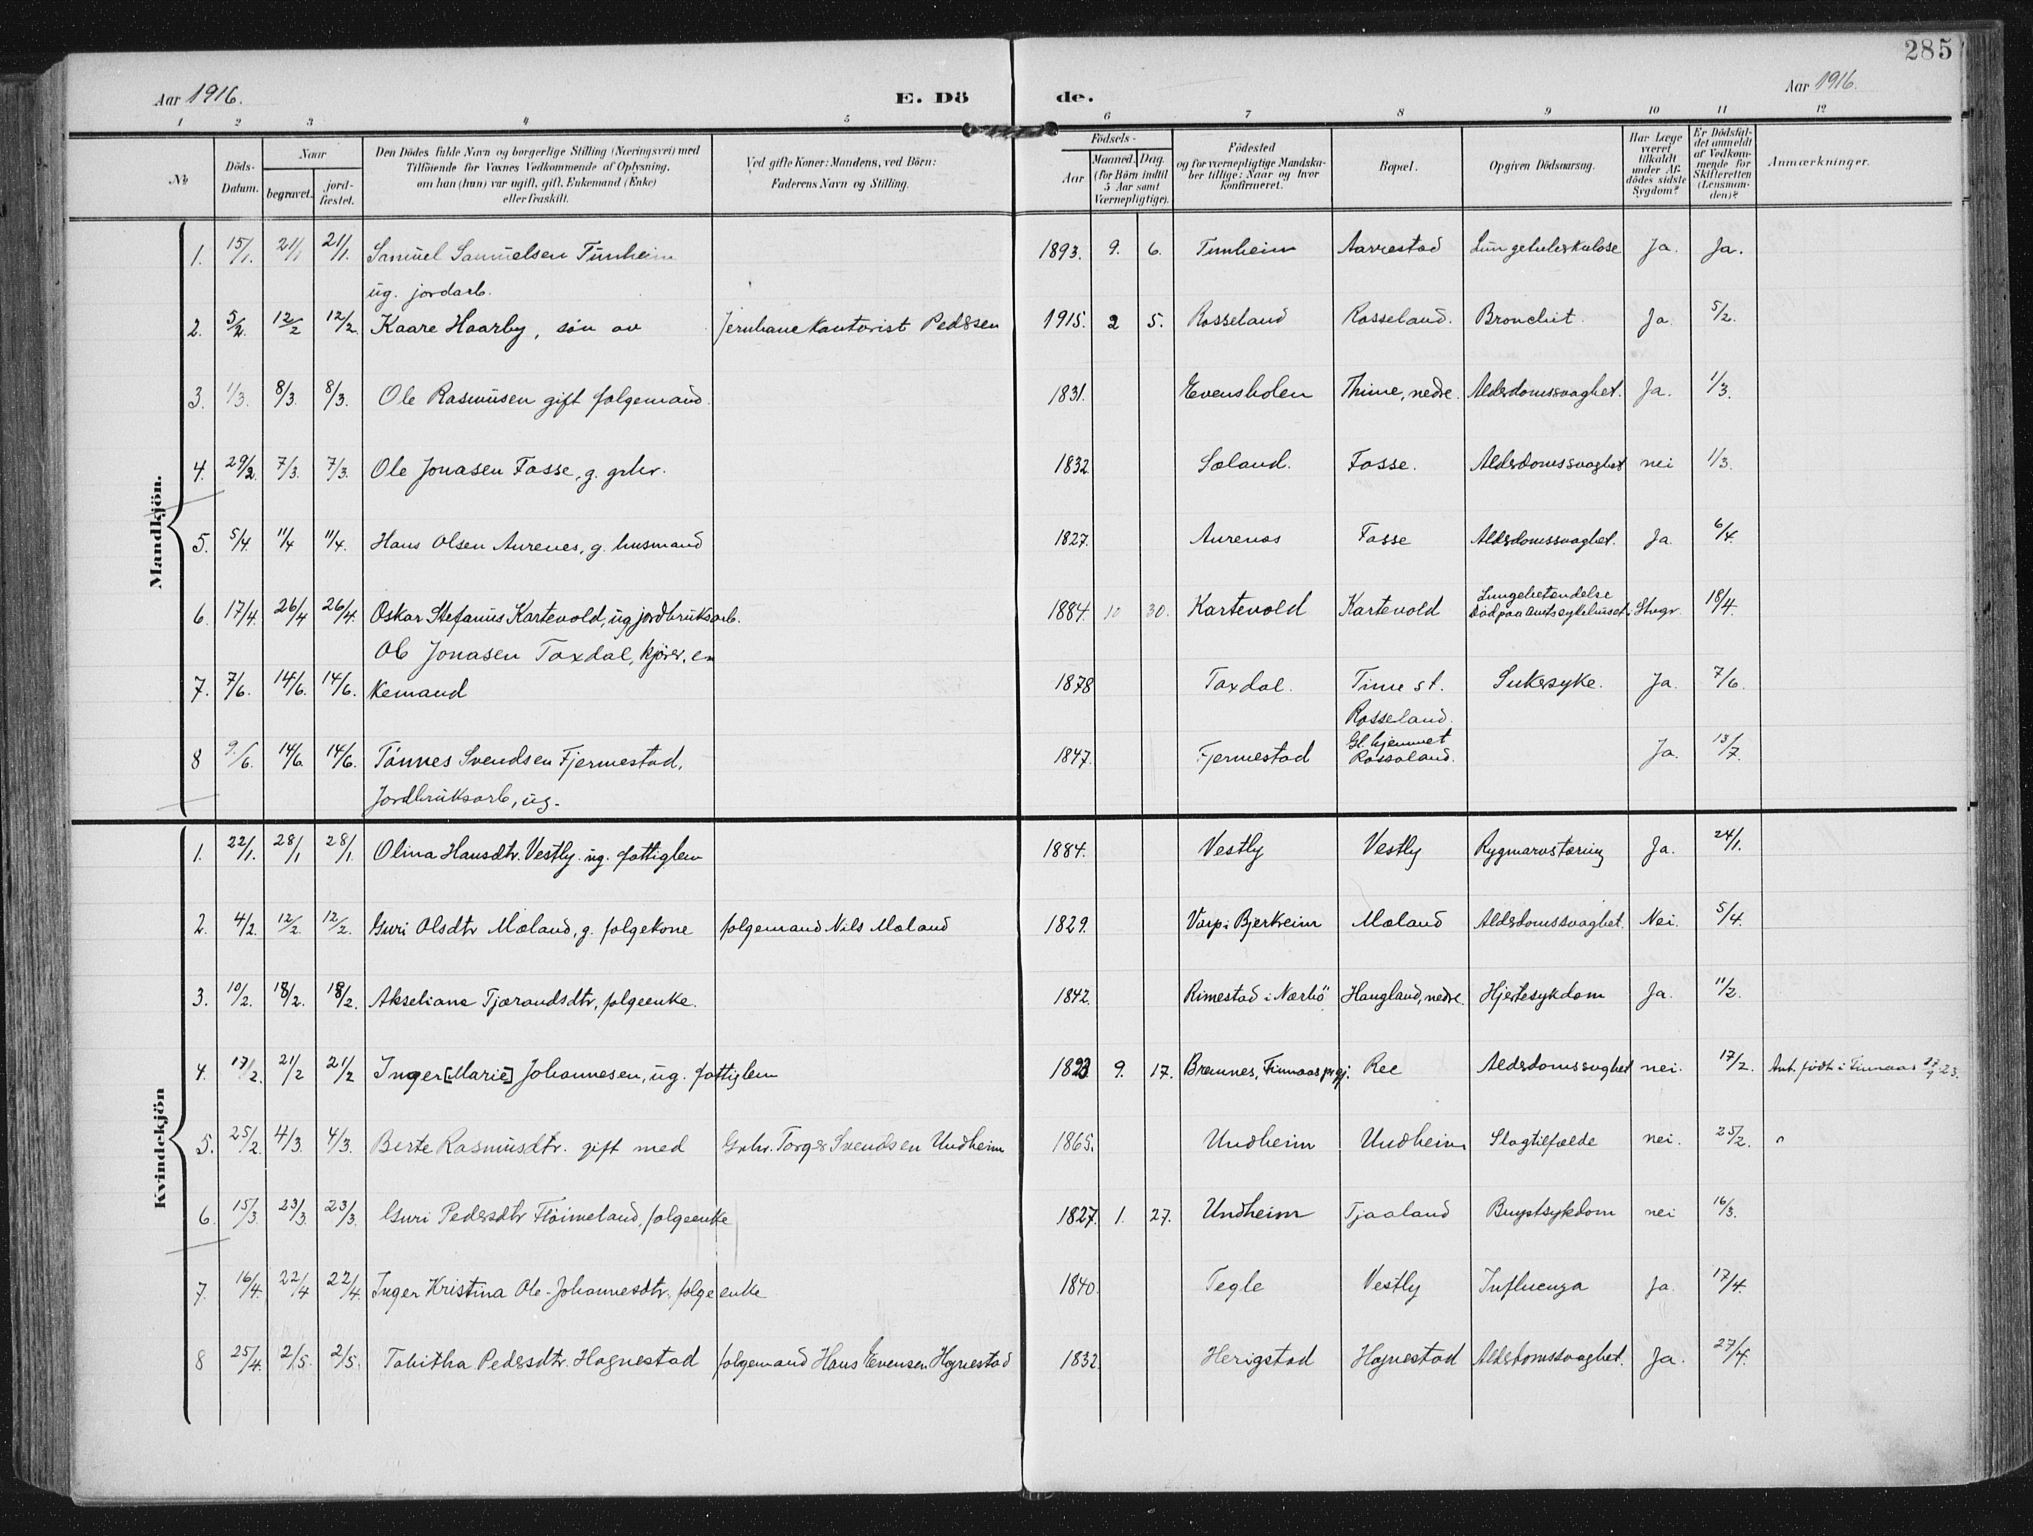 285
Aar 1916.
E. Dö
de.
Aar 1916.
1 2 3 4 5 6 7 8 9 10 11 12
№
Döds-
Datum.
Naar
begravet.
jord-
fæstet.
Den Dödes fulde Navn og borgerlige Stilling (Næringsvei) med
Tilföiende for Voxnes Vedkommende af Oplysning,
om han (hun) var ugift, gift, Enkemand (Enke)
eller fraskilt.
Ved gifte Koner: Mandens, ved Börn:
Faderens Navn og Stilling.
Födsels-
Aar
Maaned. Dag.
(for Börn indtil
5 Aar samt
Værnepligtige).
Födested
og for værnepligtige Mandska-
ber tillige: Naar og hvor
konfirmeret.
Bopæl.
Opgiven Dödsaarsag.
Har Læge
været
tilkaldt
under Af-
dödes sidste
Sygdom?
Er Dödsfal-
det anmeldt
af Vedkom-
mende for
Skifteretten
(Lensman-
den)?
Anmærkninger.
Mandkjön.
1. 15/1. 21/1 21/1. Samuel Samuelsen Tunheim 1893. 9. 6. Tunheim Aarrestad Lungetuberkulose Ja. Ja.
ug. jordarb.
2. 5/2. 12/2 12/2. Kaare Haarby, søn av Jernbanekontorist Pedersen 1915. 2 5. Rosseland Rosseland. Bronchit. Ja. 5/2.
3. 1/3. 8/3. 8/3. Ole Rasmusen gift folgemand. 1831. Evensholen Thime, nedre. Alderdomssvaghet. Ja. 1/3.
4. 29/2. 7/3. 7/3. Ole Jonasen Fosse, g. grbr. 1832 Søland. Fosse. Alderdomssvaghet nei 1/3.
5. 5/4. 11/4 11/4. Hans Olsen Aurenes, g. husmand 1827. Aurenes Fosse Alderdomssvaghet. Ja. 6/4.
6. 17/4. 26/4 26/4. Oskar Stefanus Kartevold, ug jordbruksarb. 1884. 10 30. Kartevold Kartevold Lungebetendelse
Død paa Amtssykehuset, Stvgr. 18/4.
Ole Jonasen Taxdal, kjører, en
7. 7/6. 14/6. 14/6. kemand 1878 Taxdal. Time st. Sukersyke. Ja. 7/6.
Rosseland.
8 9/6. 14/6. 14/6. Tønnes Svendsen Fjermestad, 1847. Fjermestad Gl. hjemmet
Rosseland. Ja. 13/7.
Jordbruksarb, ug.
Kvindekjön
1. 22/1. 28/1 28/1. Olina Hansdtr. Vestly. ug. fattiglem 1884. Vestly Vestly Rygmarvstæring Ja. 24/1.
2. 4/2. 12/2. 12/2. Guri Olsdtr Mæland, g. folgekone folgemand Nils Mæland 1829. Varp i Bjerkreim Mæland Alderdomssvaghet. Nei. 5/4.
3. 10/2. 18/2. 18/2. Akseliane Tjærandsdtr, folgeenke. 1842. Rimestad i Nærbö Haugland, nedre. Hjertesykdom Ja. 11/2.
4. 17/2. 21/2 21/2 Inger [Marie] Johannesen, ug. fattiglem 1823 9. 17. Bremnes, Finnaas prgj. Ree Alderdomssvaghet nei. 17/2. Ant. født i Finnaas 27/9 23.
5. 25/2. 4/3. 4/3. Berte Rasmusdtr. gift med Grbr. Torger Svendsen Undheim 1865. Undheim Undheim Slagtilfælde nei. 25/2.
6. 15/3. 23/3. 23/3. Guri Pedersdtr Fløimeland, folgeenke 1827. 1. 27. Undheim Tjaaland Brystsykdom nei 16/3.
7. 16/4. 22/4 22/4. Inger Kristina Ole-Johannesdtr. folgeenke 1840. Tegle Vestly Influenza Ja. 17/4.
8 25/4. 2/5. 2/5. Tabitha Pedersdtr. Hognestad folgemand Hans Evensen Hognestad 1832 Herigstad Hognestad Alderdomssvaghet. Ja. 27/4.